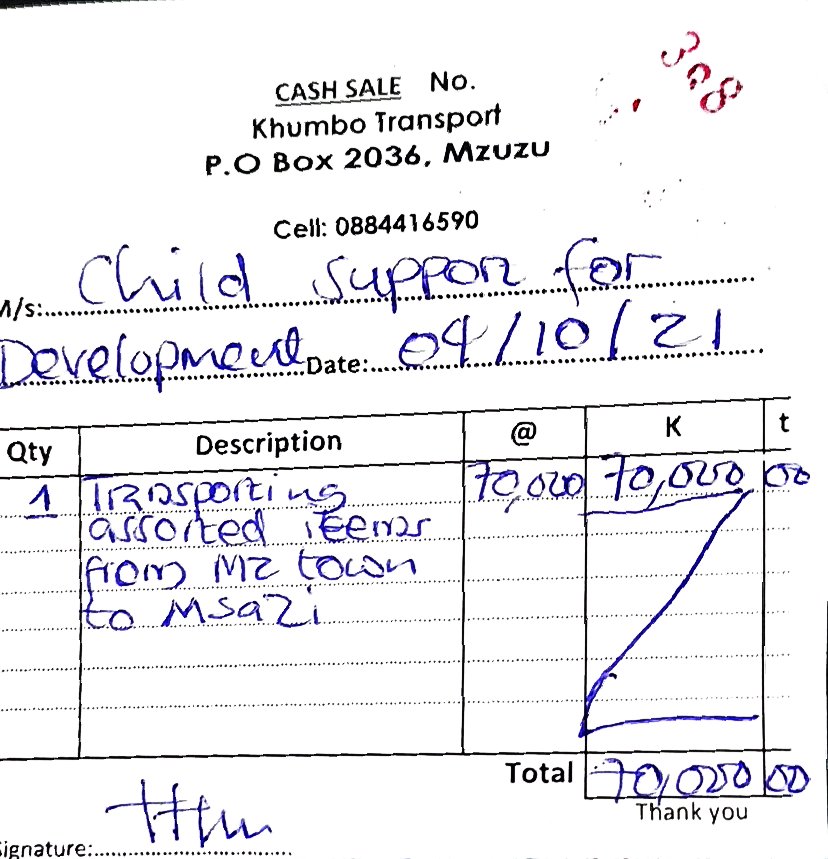 CASH SALE No. 308
Khumbo Transport
P.O Box 2036, Mzuzu
Cell: 0884416590
M/s: Child support for
Development Date: 04/10/21
Qty Description @ K t
1 Transporting 70,000 70,000 00
assorted items
from Mz town
to Msazi
Total 70,000 00
Thank you
Signature: